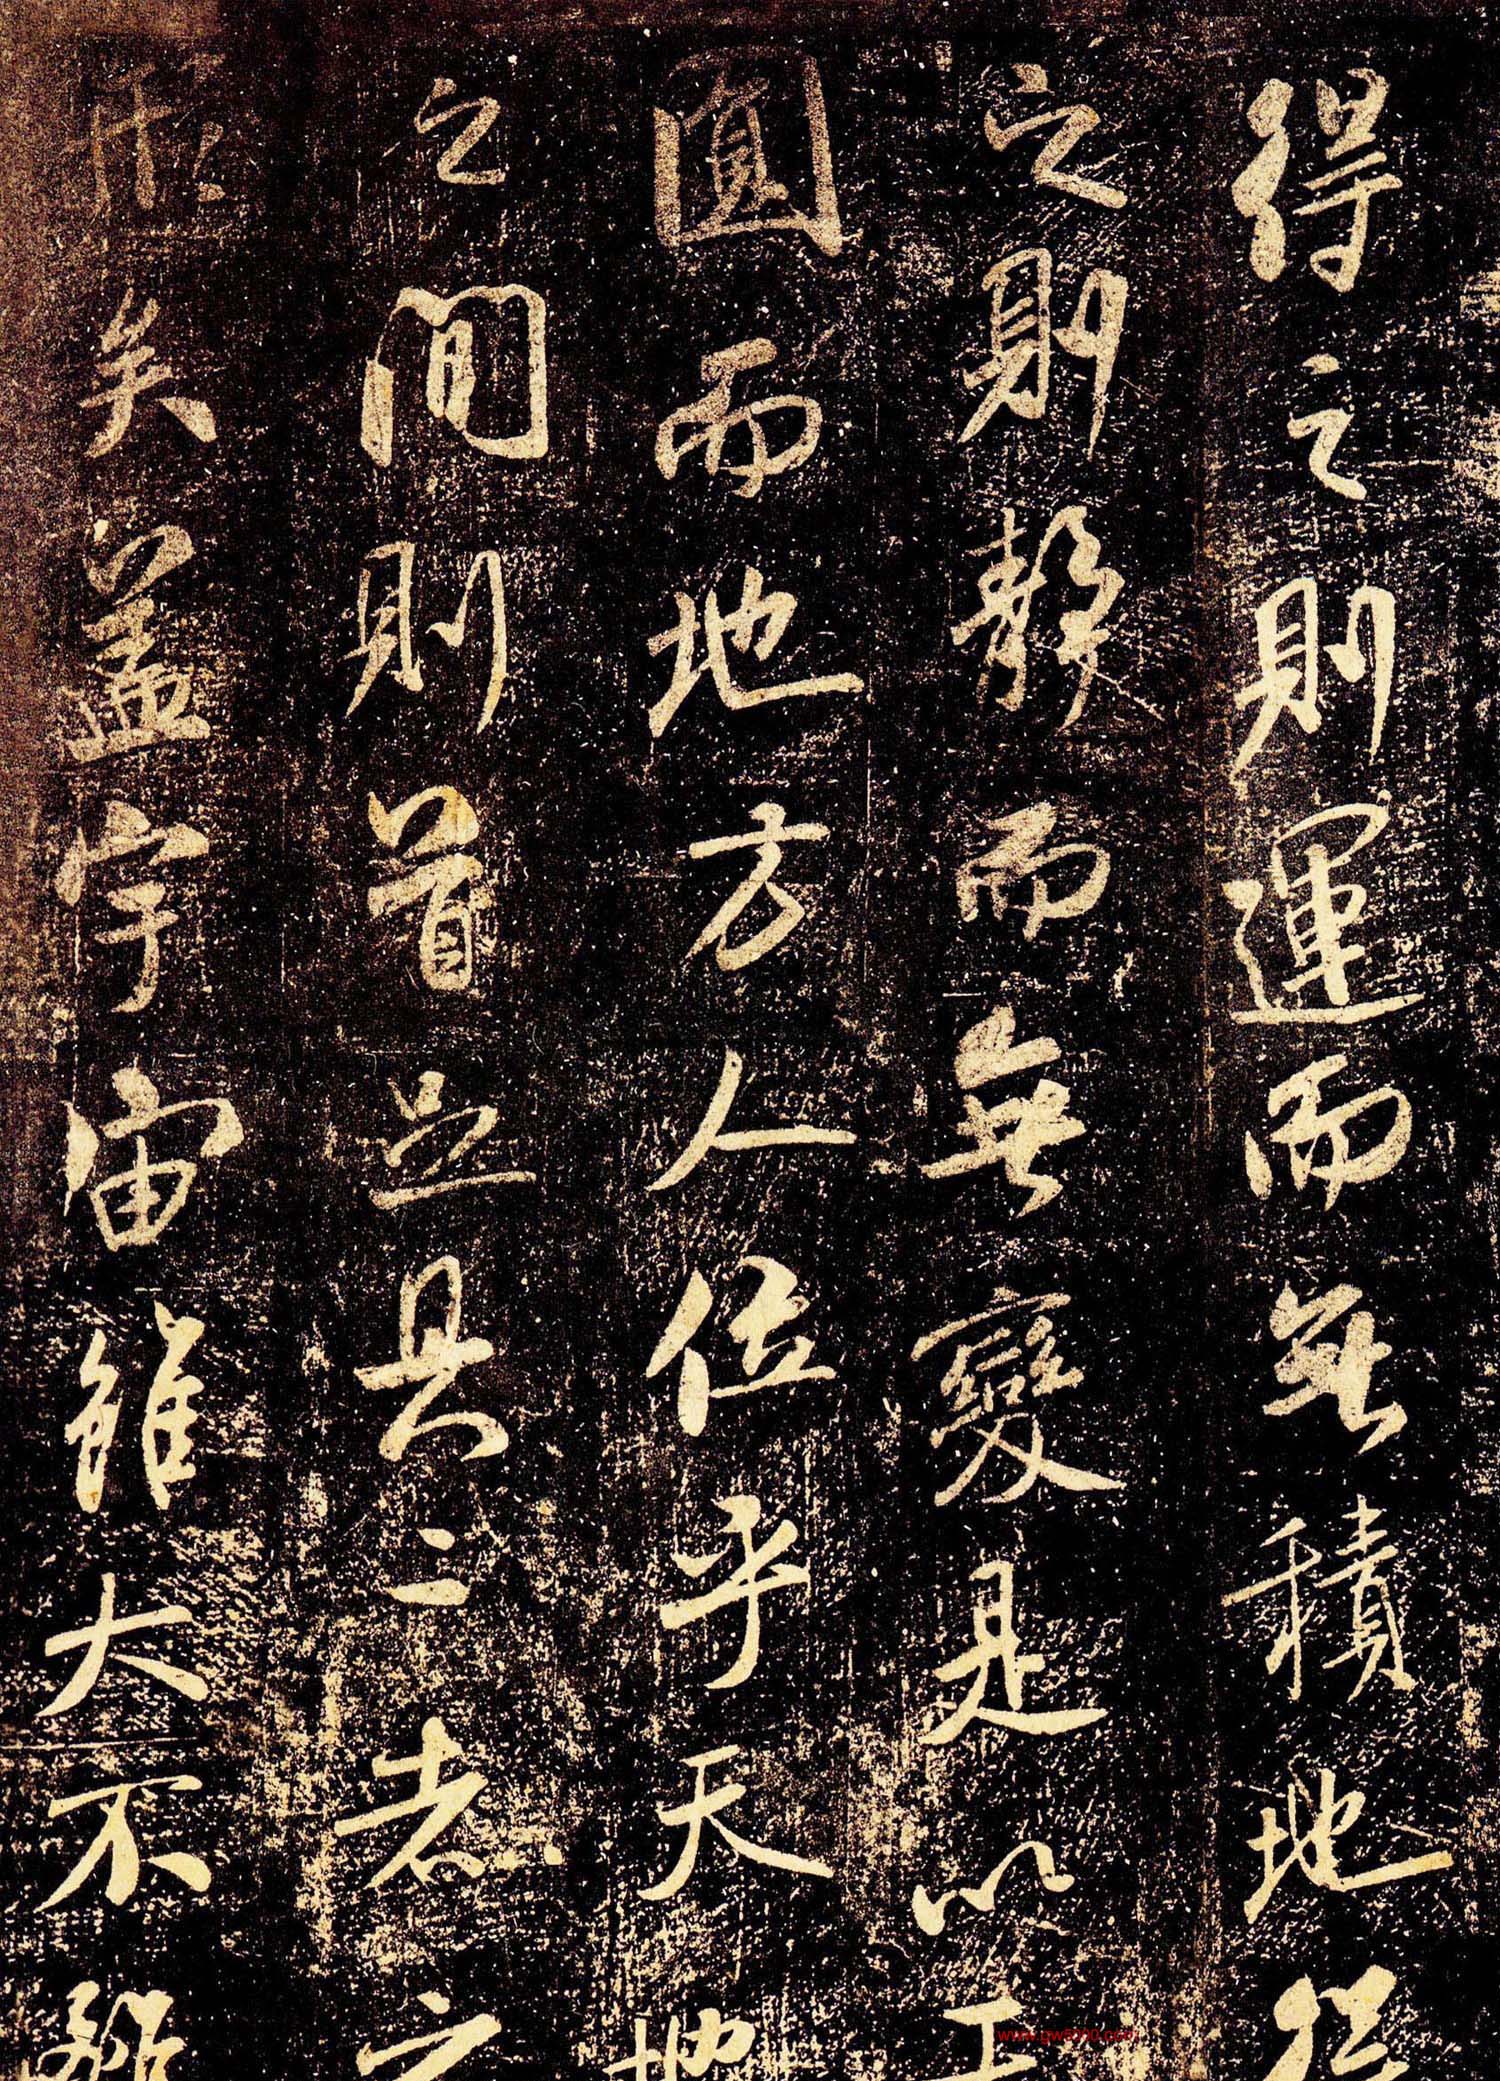 得之則運而無積地得
之則靜而無變是以
圓而地方人位乎天地
之間則首足具二者之
形矣蓋宇宙雖大不離
www.gw5000.com